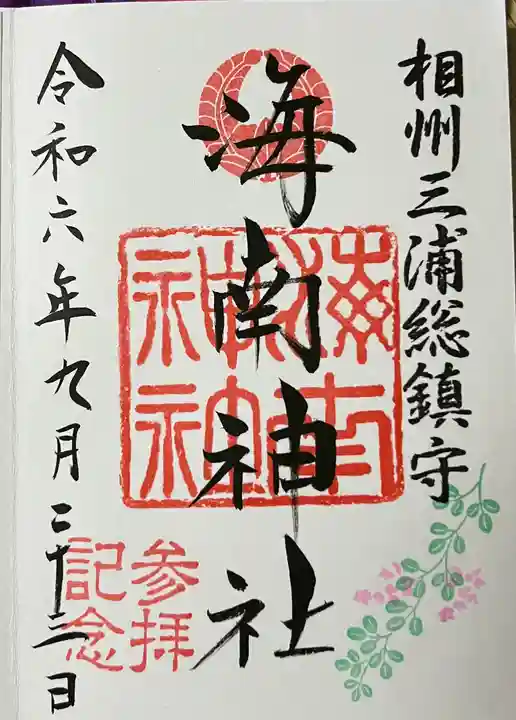 相州三浦総鎮守
海南神社
令和六年九月二十三日
参拝
記念